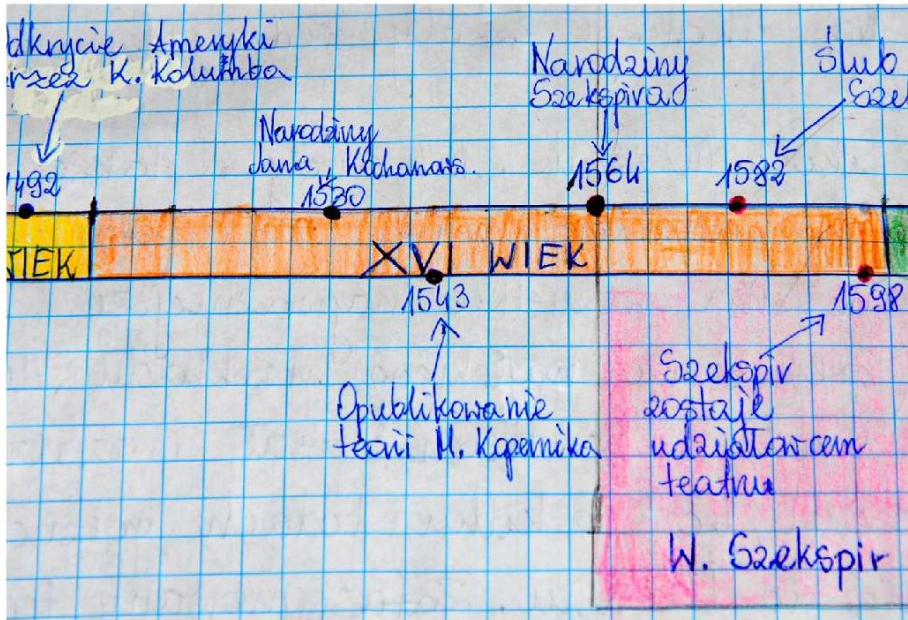 dkrycie Ameryki
rzez K. Kolumba
1492
Narodziny
Jana Kochanows.
1530
Narodziny
Szekspira
1564
Ślub
Szek
1582
WIEK
XVI WIEK
1543
Opublikowanie
teorii M. Kopernika
1598
Szekspir
zostaje
udziałowcem
teatru
W. Szekspir